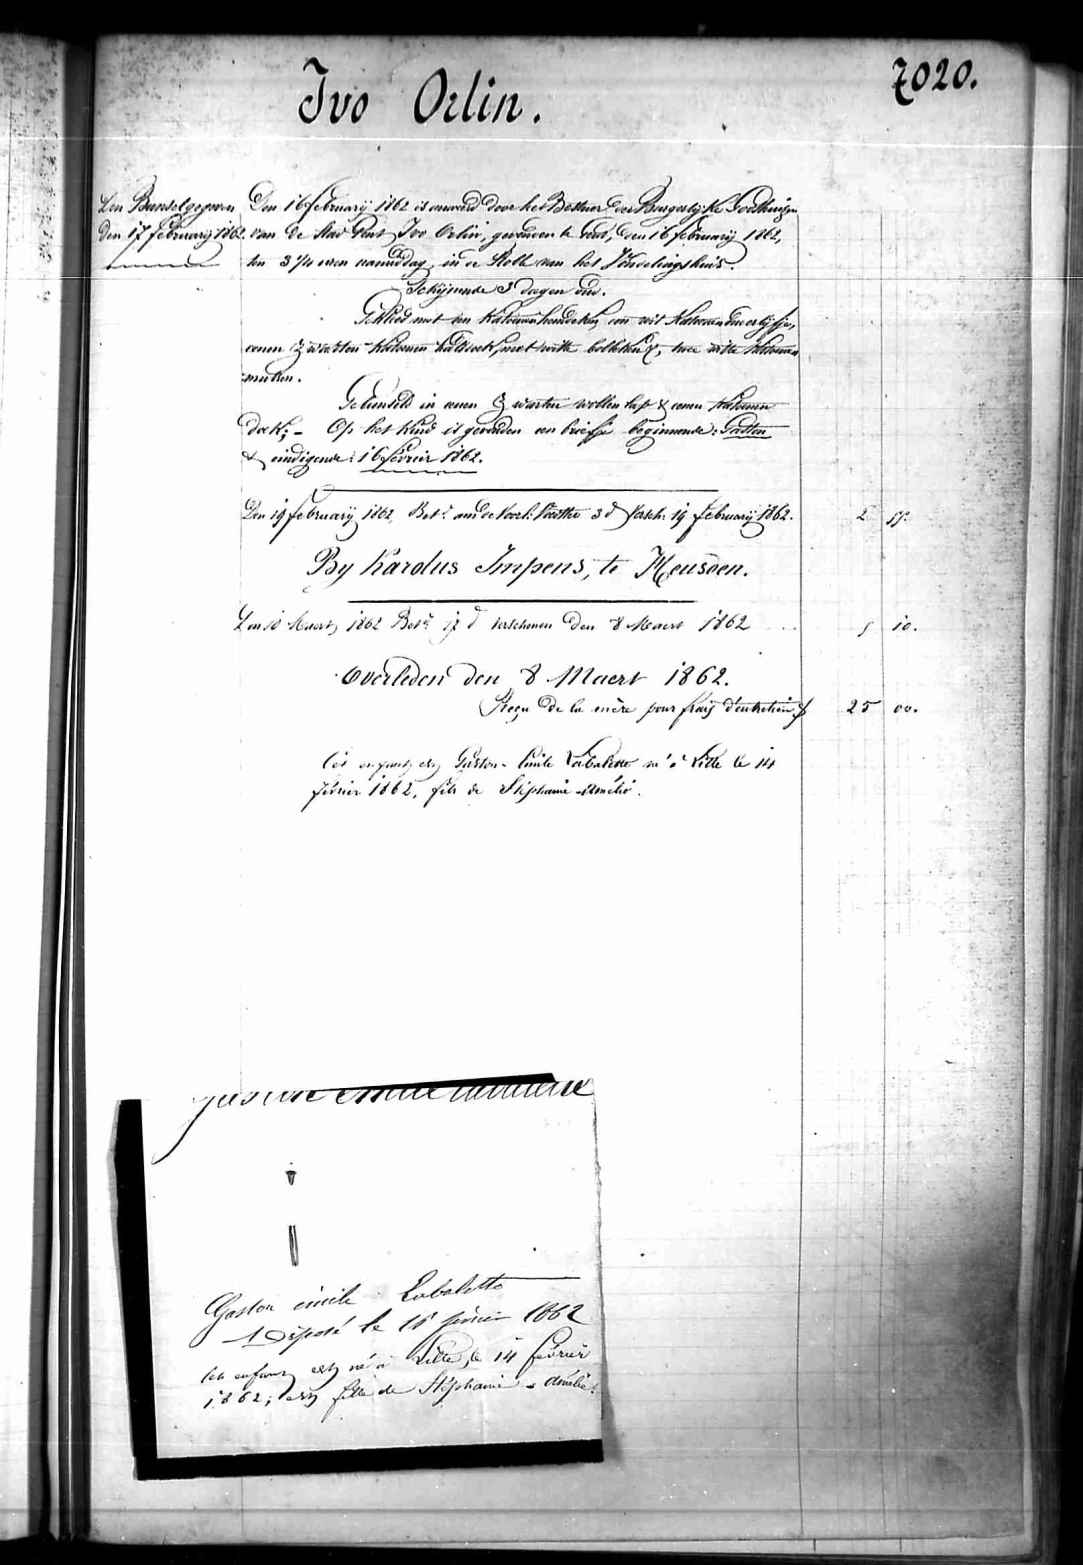 Ivo Orlin.
7020.
Den 16 february 1862 is aanveerd door het Bestuer der Burgerlyke Godshuizen
den 17 february 1862.
van de Stad Gent Ivo Orlin, gevonden te Gend, den 16 february 1862,
ten 3 3/4 uren namiddag, in de Rolle van het Vondelingshuis.
Schynende 3 dagen oud.
Gekleed met een katoenen hemdeken, een wit katoenen
eenen zwarten katoenen halsdoek, met witte bollekens, twee witte katoenen
mutsen.
Gebunseld in eenen zwarten wollen lap & eenen katoenen
doek; - Op het kind is gevonden een briefje beginnende: Gaston
& eindigende: 16 février 1862.
Den 19 february 1862, Bet. aan de 3 d. 19 february 1862.
2
By Karolus Impens, te Heusden.
Den 10 Maert 1862 Bet. 17 d. verschenen den 8 Maert 1862
10.
Overleden den 8 Maert 1862.
Reçu de la mère pour frais d'entretien, f
25 00.
Cet enfant est Gaston-Emile Labalette né à Lille le 14
février 1862, fils de Stéphanie Amélie.
Gaston emile labalette
Gaston émile Labalette
Déposé le 16 février 1862
Cet enfant est né à Lille, le 14 février
1862; est fils de Stéphanie - Amélie.